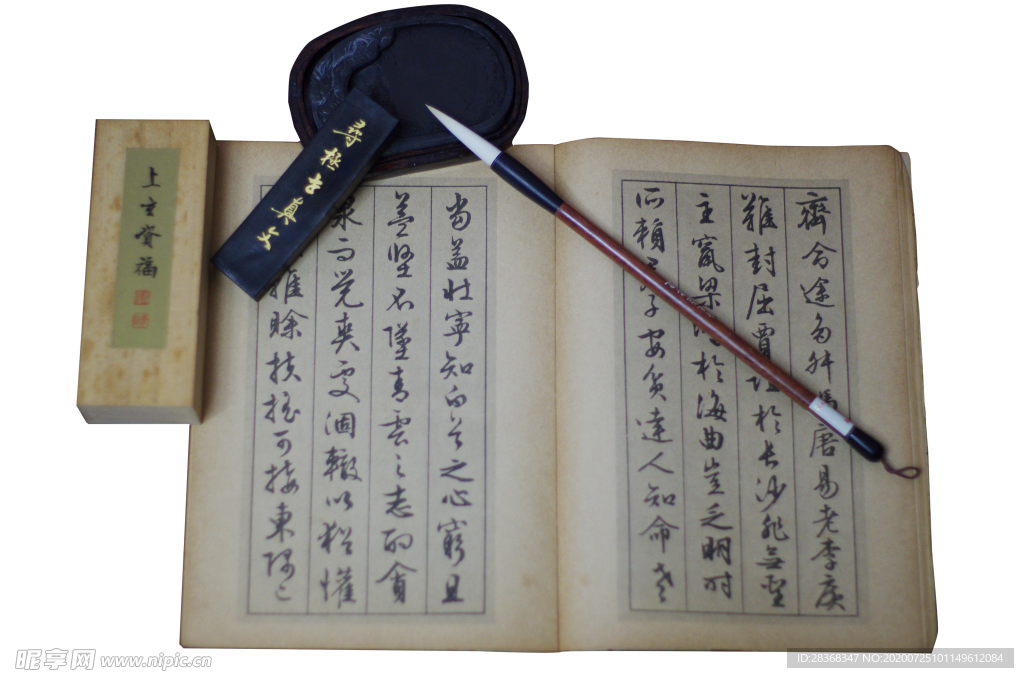 上玄資福
齊命途多舛馮唐易老李廣
難封屈賈誼於長沙非無聖
主竄梁鴻於海曲豈乏明時
所賴君子安貧達人知命老
當益壯寧知白首之心窮且
益堅不墜青雲之志酌貪
泉而覺爽處涸轍以猶懽
雖賒扶搖可接東隅已
昵享网 www.nipic.cn
ID:28368347 NO:20200725101149612084